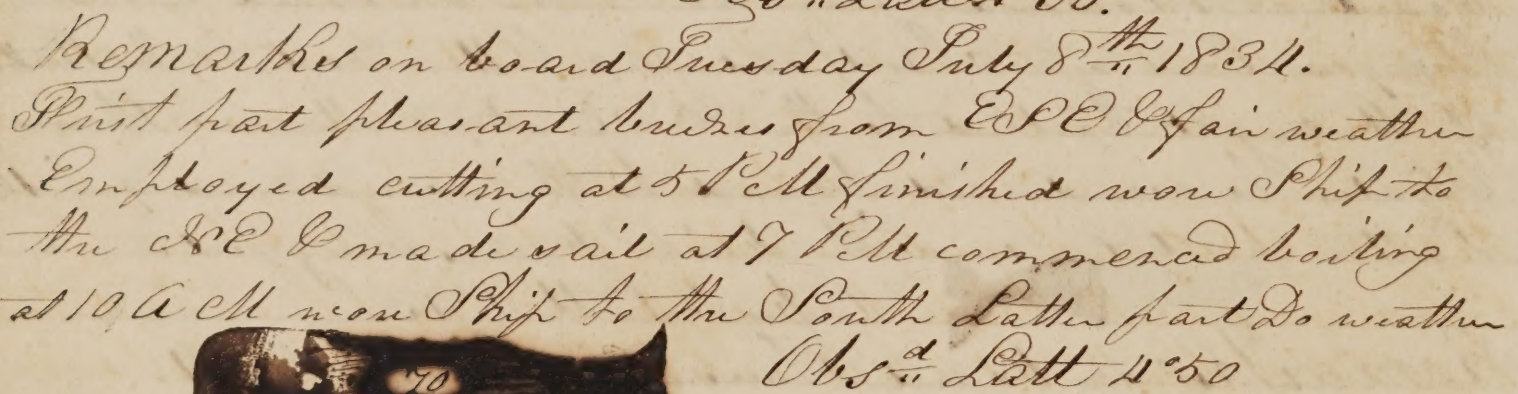 Remarks on board Tuesday July 8th 1834.
First part pleasant breezes from ESE & fair weather
Employed cutting at 5 PM finished wore Ship to
the NE & made sail at 7 PM commenced boiling
at 10 AM wore Ship to the South Latter part Do weather
70
Obsd Latt 4°50